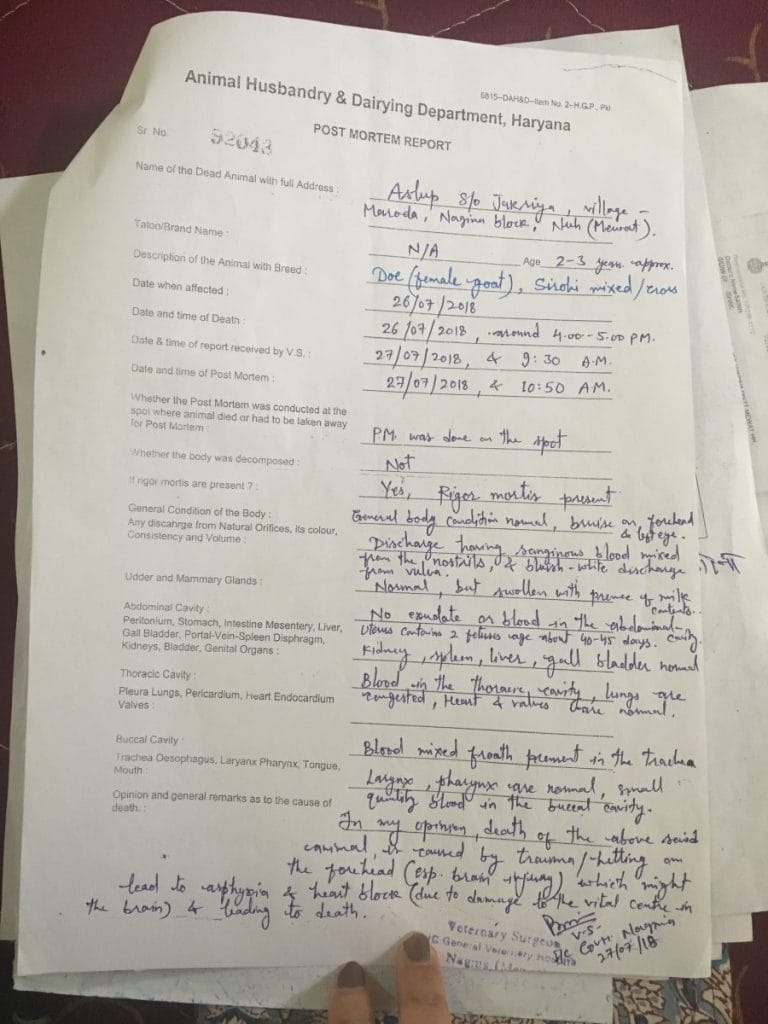 6815-DAH&D-Item No. 2-H.G.P., Pkl.
Animal Husbandry & Dairying Department, Haryana
POST MORTEM REPORT
Sr. No. 92043
Name of the Dead Animal with full Address : Aslup S/o Jakriya, village -
Maroda, Nagina block, Nuh (Mewat).
Tatoo/Brand Name : N/A Age 2-3 years approx.
Description of the Animal with Breed : Doe (female goat), Sirohi mixed/cross
Date when affected : 26/07/2018
Date and time of Death : 26/07/2018, around 4.00-5.00 PM.
Date & time of report received by V.S. : 27/07/2018, & 9:30 A.M.
Date and time of Post Mortem : 27/07/2018, & 10:50 AM.
Whether the Post Mortem was conducted at the
spot where animal died or had to be taken away
for Post Mortem : PM was done on the spot
Whether the body was decomposed : Not
If rigor mortis are present ? : Yes, Rigor mortis present
General Condition of the Body : General body condition normal, bruise on forehead
& left eye.
Any discahrge from Natural Orifices, its colour,
Consistency and Volume : Discharge having sanginous blood mixed
from the nostrils, & bluish-white discharge
from vulva.
Udder and Mammary Glands : Normal, but swollen with of milk
contents.
Abdominal Cavity : No exudate or blood in the abdominal
cavity.
Peritonium, Stomach, Intestine Mesentery, Liver, Uterus contains 2 fetuses age about 40-45 days.
Gail Bladder, Portal-Vein-Spleen Disphragm,
Kidneys, Bladder, Genital Organs : Kidney, spleen, liver, gall bladder normal
Thoracic Cavity : Blood in the thoracic cavity, lungs are
Pleura Lungs, Pericardium, Heart Endocardium congested, Heart & valves are normal.
Valves :
Buccal Cavity : Blood mixed froath present in the trachea
Trachea Oesophagus, Laryanx Pharynx, Tongue,
Mouth : Larynx, pharynx are normal, small
quantity blood in the buccal cavity.
Opinion and general remarks as to the cause of
death. : In my opinion, death of the above said
animal, is caused by trauma/hetting on
the forehead (esp. brain injury) which might
lead to asphyxia & heart block (due to damage to the vital centre in
the brain) & leading to death.
Veternary Surgeon
General Veterinary Hospital
Nagina
V.S.
Govt. Nagina
27/07/18